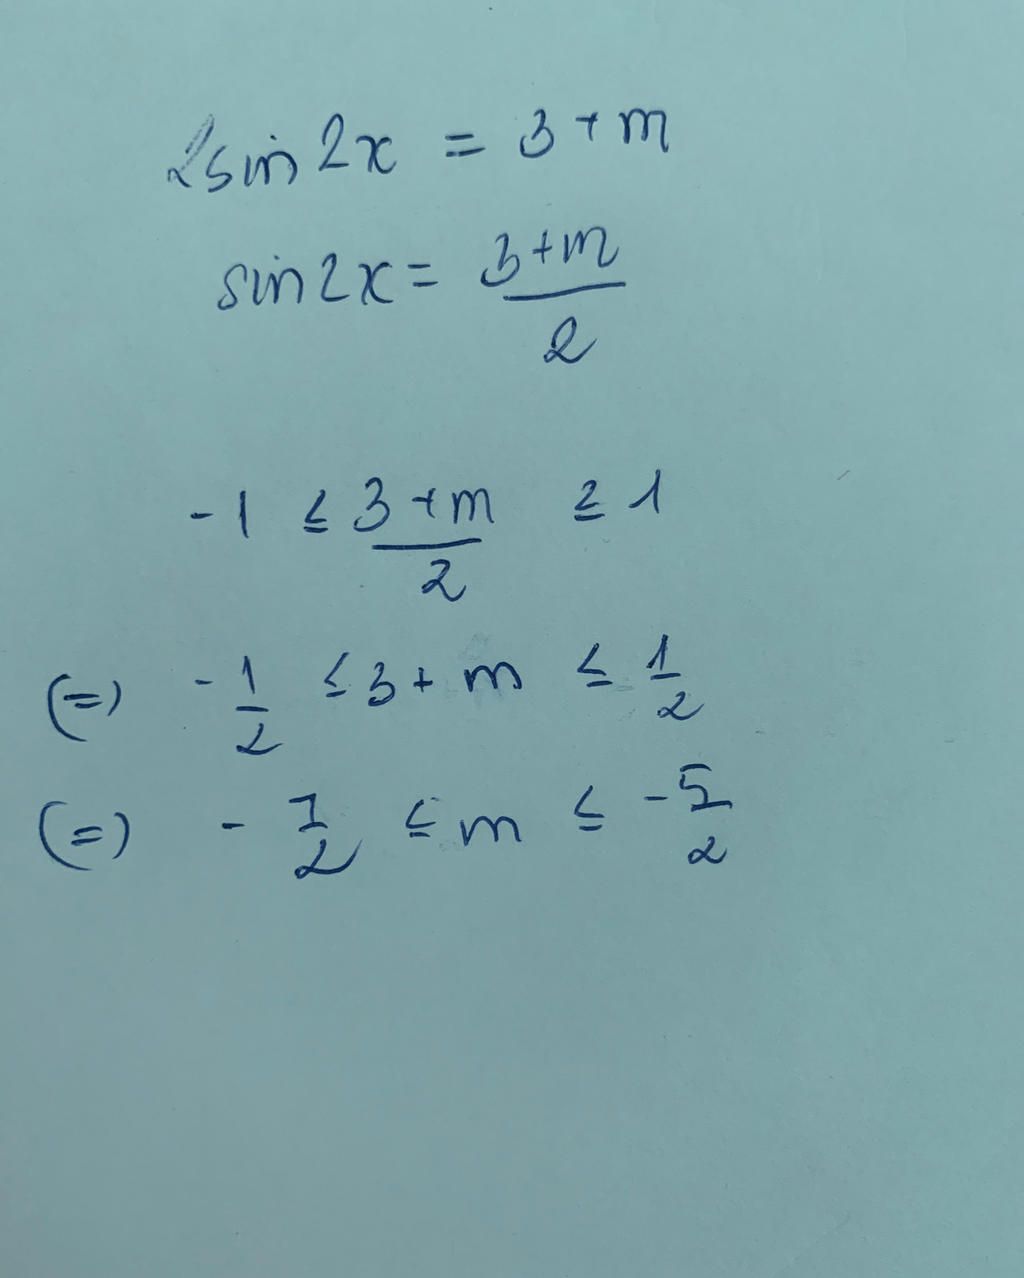 2sin2x = 3 + m
sin2x = \frac{3+m}{2}
-1 ≤ \frac{3+m}{2} ≥ 1
(=) -\frac{1}{2} ≤ 3 + m ≤ \frac{1}{2}
(=) -\frac{7}{2} ≤ m ≤ -\frac{5}{2}